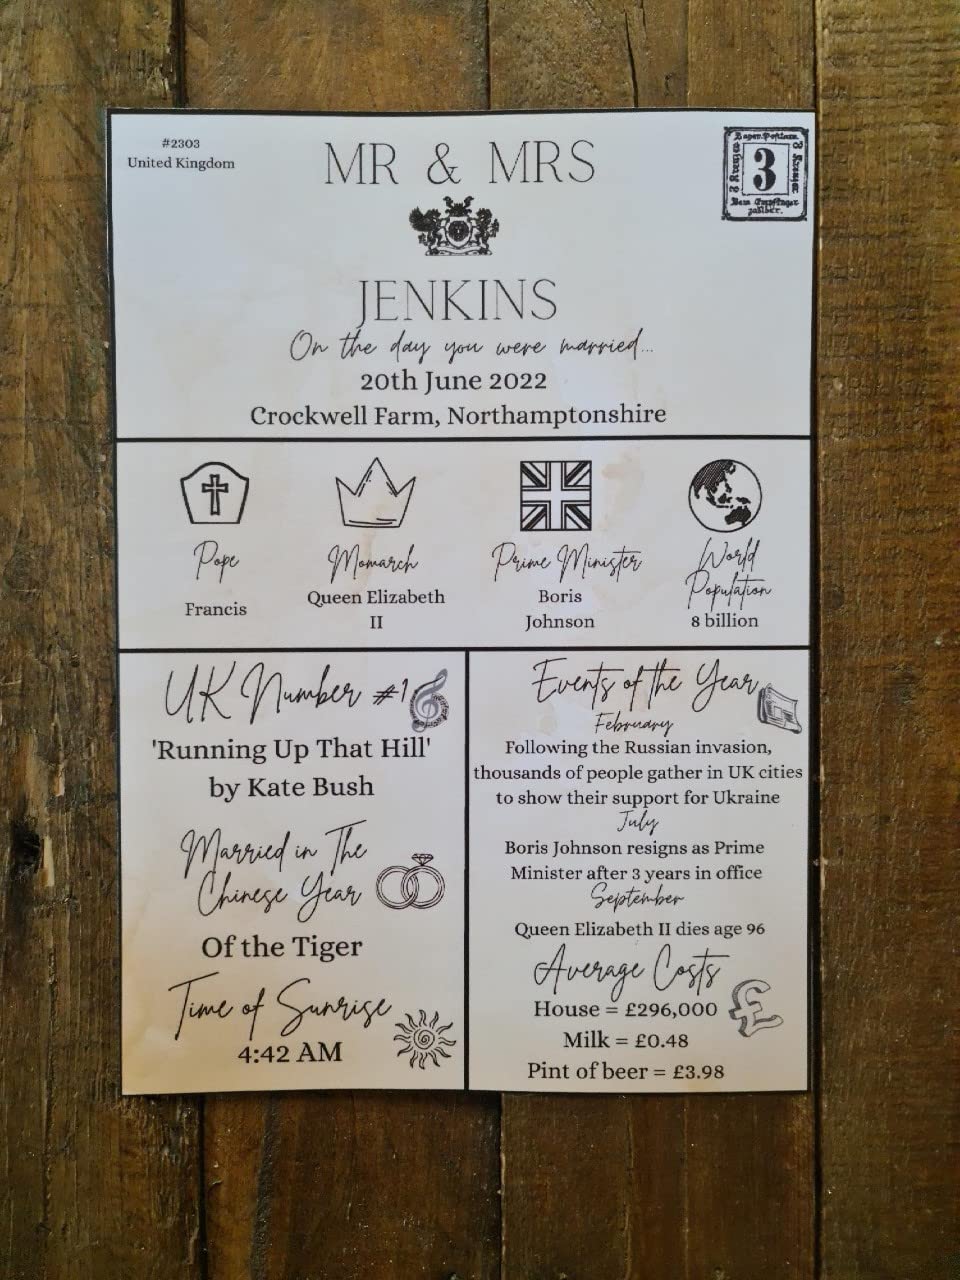 #2303
United Kingdom
MR & MRS
JENKINS
On the day you were married...
20th June 2022
Crockwell Farm, Northamptonshire
Bayer. Posttaxe
3 Kreuzer
3
3 Kreuzer
Vom Empfänger
zahlbar.
Pope
Francis
Monarch
Queen Elizabeth
II
Prime Minister
Boris
Johnson
World
Population
8 billion
UK Number #1
'Running Up That Hill'
by Kate Bush
Married in The
Chinese Year
Of the Tiger
Time of Sunrise
4:42 AM
Events of the Year
February
Following the Russian invasion,
thousands of people gather in UK cities
to show their support for Ukraine
July
Boris Johnson resigns as Prime
Minister after 3 years in office
September
Queen Elizabeth II dies age 96
Average Costs
House = £296,000
Milk = £0.48
Pint of beer = £3.98
£